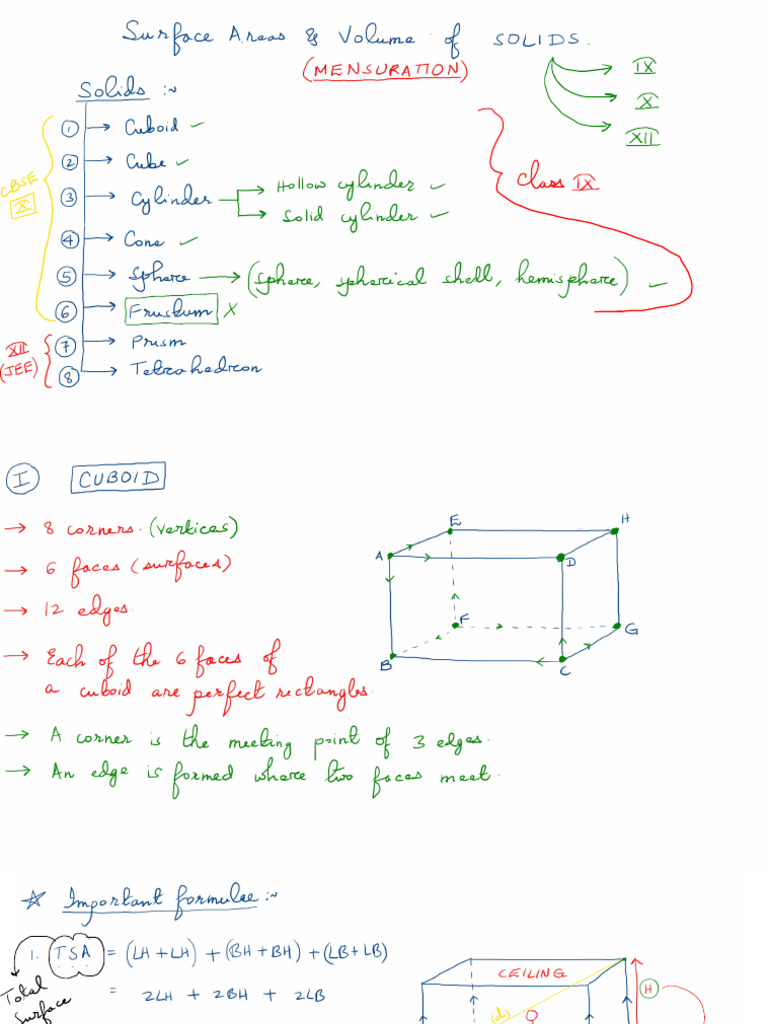 Surface Areas & Volume of SOLIDS.
(MENSURATION)
IX
X
XII
Solids :~
1 → Cuboid ✓
2 → Cube ✓
3 → Cylinder → Hollow cylinder ✓
→ Solid cylinder ✓
4 → Cone ✓
5 → Sphere → (Sphere, spherical shell, hemisphere) ✓
6 → Frustum X
7 → Prism
8 → Tetrahedron
CBSE
X
XII
(JEE)
Class IX
I CUBOID
→ 8 corners. (vertices)
→ 6 faces (surfaces)
→ 12 edges.
→ Each of the 6 faces of
a cuboid are perfect rectangles.
→ A corner is the meeting point of 3 edges.
→ An edge is formed where two faces meet.
E H
A D
F G
B C
☆ Important formulae :~
1. TSA = (LH + LH) + (BH + BH) + (LB + LB)
= 2LH + 2BH + 2LB
Total
Surface
CEILING
H
(d)